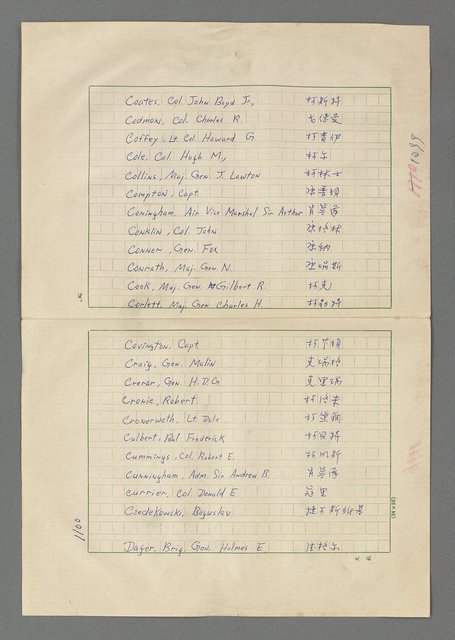 Coates, Col. John Boyd Jr., 柯斯特
Codman, Col. Charles R. 戈德曼
Coffey, Lt Col. Howard G. 柯費伊
Cole, Col. Hugh M., 柯尔
Collins, Maj. Gen. J. Lawton 柯林士
Compton, Capt 康普頓
Coningham, Air Vice Marshal Sir Arthur
Conklin, Col. John 康
Conner, Gen. Fox 康納
Conrath, Maj. Gen. N. 康瑞斯
Cook, Maj. Gen. Gilbert R. 柯克
Corlett, Maj. Gen. Charles H. 柯勒特
Covington, Capt 柯
Craig, Gen. Malin 克瑞格
Crerar, Gen. H.D.G. 克里瑞
Cronie, Robert 柯
Cronerweth, Lt. Dale 柯
Culbert, Frederick 柯貝特
Cummings, Col. Robert E. 柯明斯
Cunningham, Adm. Sir Andrew B.
Currier, Col. Donald E. 寇里
Czedekowski, Boguslav
(24×25)
1100
Dager, Brig. Gen. Holmes E.